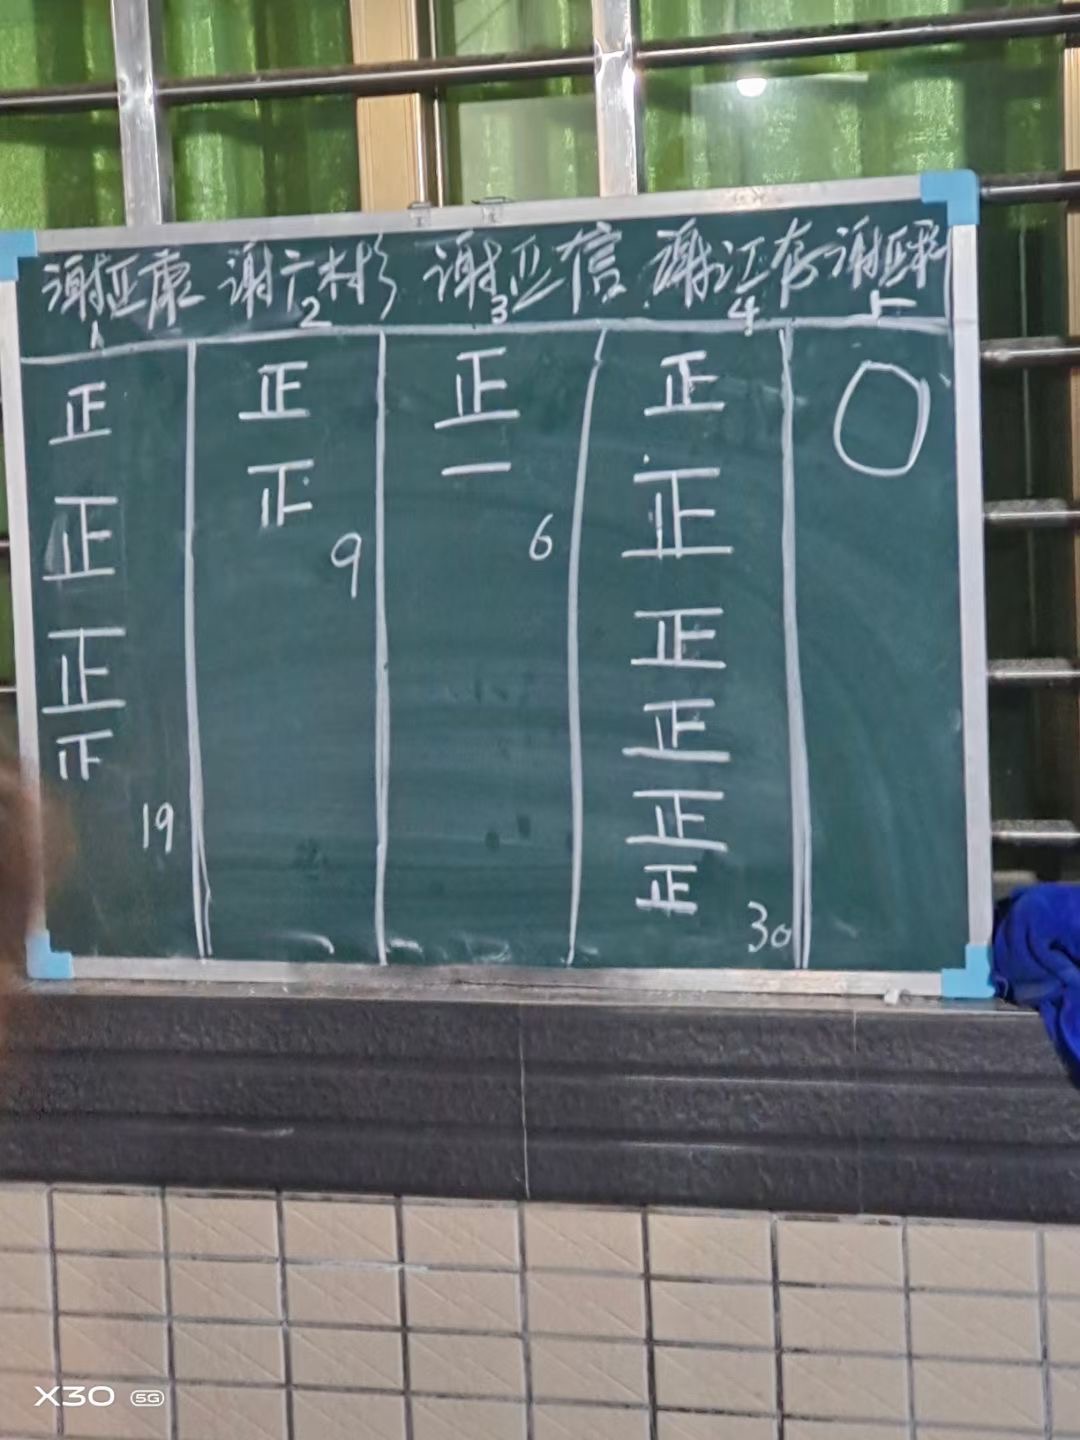 谢亚康 谢广彬 谢亚信 谢江存 谢亚彩
1 2 3 4 5
正 正 正 正 0
正 正 一 正
正 9 6 正
正 正
19 正
正
30
X30 5G